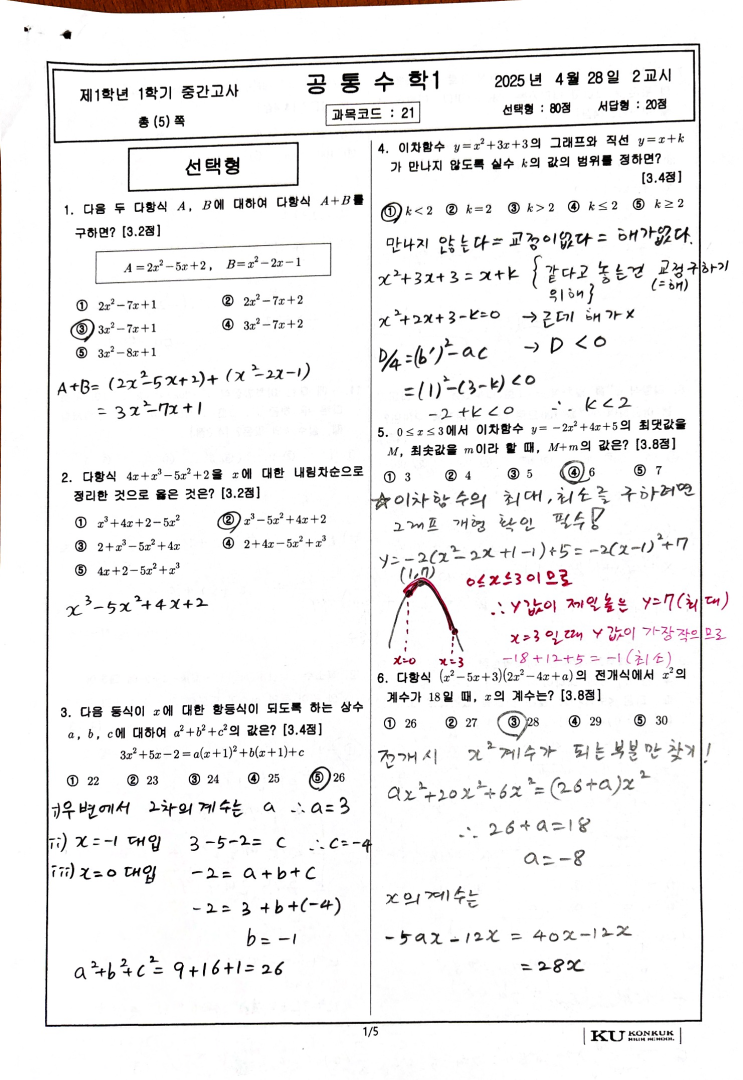 제1학년 1학기 중간고사
총 (5) 쪽
공 통 수 학1
과목코드 : 21
2025년 4월 28일 2교시
선택형 : 80점 서답형 : 20점
선택형
1. 다음 두 다항식 A, B에 대하여 다항식 A+B를
구하면? [3.2점]
A=2x²-5x+2, B=x²-2x-1
① 2x²-7x+1 ② 2x²-7x+2
③ 3x²-7x+1 ④ 3x²-7x+2
⑤ 3x²-8x+1
A+B= (2x²-5x+2)+(x²-2x-1)
= 3x²-7x+1
2. 다항식 4x+x³-5x²+2을 x에 대한 내림차순으로
정리한 것으로 옳은 것은? [3.2점]
① x³+4x+2-5x² ② x³-5x²+4x+2
③ 2+x³-5x²+4x ④ 2+4x-5x²+x³
⑤ 4x+2-5x²+x³
x³-5x²+4x+2
3. 다음 등식이 x에 대한 항등식이 되도록 하는 상수
a, b, c에 대하여 a²+b²+c²의 값은? [3.4점]
3x²+5x-2=a(x+1)²+b(x+1)+c
① 22 ② 23 ③ 24 ④ 25 ⑤ 26
i)우변에서 2차의 계수는 a ∴a=3
ii) x=-1 대입 3-5-2= c ∴c=-4
iii) x=0 대입 -2= a+b+c
-2= 3+b+(-4)
b=-1
a²+b²+c²= 9+16+1=26
4. 이차함수 y=x²+3x+3의 그래프와 직선 y=x+k
가 만나지 않도록 실수 k의 값의 범위를 정하면?
[3.4점]
① k<2 ② k=2 ③ k>2 ④ k≤2 ⑤ k≥2
만나지 않는다=교점이없다=해가없다.
x²+3x+3=x+k {같다고 놓는건 교점구하기
위해} (=해)
x²+2x+3-k=0 →근데 해가 x
D/4=(b')²-ac → D<0
=(1)²-(3-k)<0
-2+k<0 ∴ k<2
5. 0≤x≤3에서 이차함수 y=-2x²+4x+5의 최댓값을
M, 최솟값을 m이라 할 때, M+m의 값은? [3.8점]
① 3 ② 4 ③ 5 ④ 6 ⑤ 7
☆이차함수의 최대,최소를 구하려면
그래프 개형 확인 필수!
y=-2(x²-2x+1-1)+5=-2(x-1)²+7
(1,7)
0≤x≤3이므로
∴y값이 제일높은 y=7(최대)
x=3일때 y값이 가장작으므로
x=0 x=3
-18+12+5=-1(최소)
6. 다항식 (x²-5x+3)(2x²-4x+a)의 전개식에서 x²의
계수가 18일 때, x의 계수는? [3.8점]
① 26 ② 27 ③ 28 ④ 29 ⑤ 30
전개시 x²계수가 되는 부분만 찾기!
ax²+20x²+6x²=(26+a)x²
∴ 26+a=18
a=-8
x의계수는
-5ax-12x = 40x-12x
=28x
1/5
KU KONKUK
HIGH SCHOOL